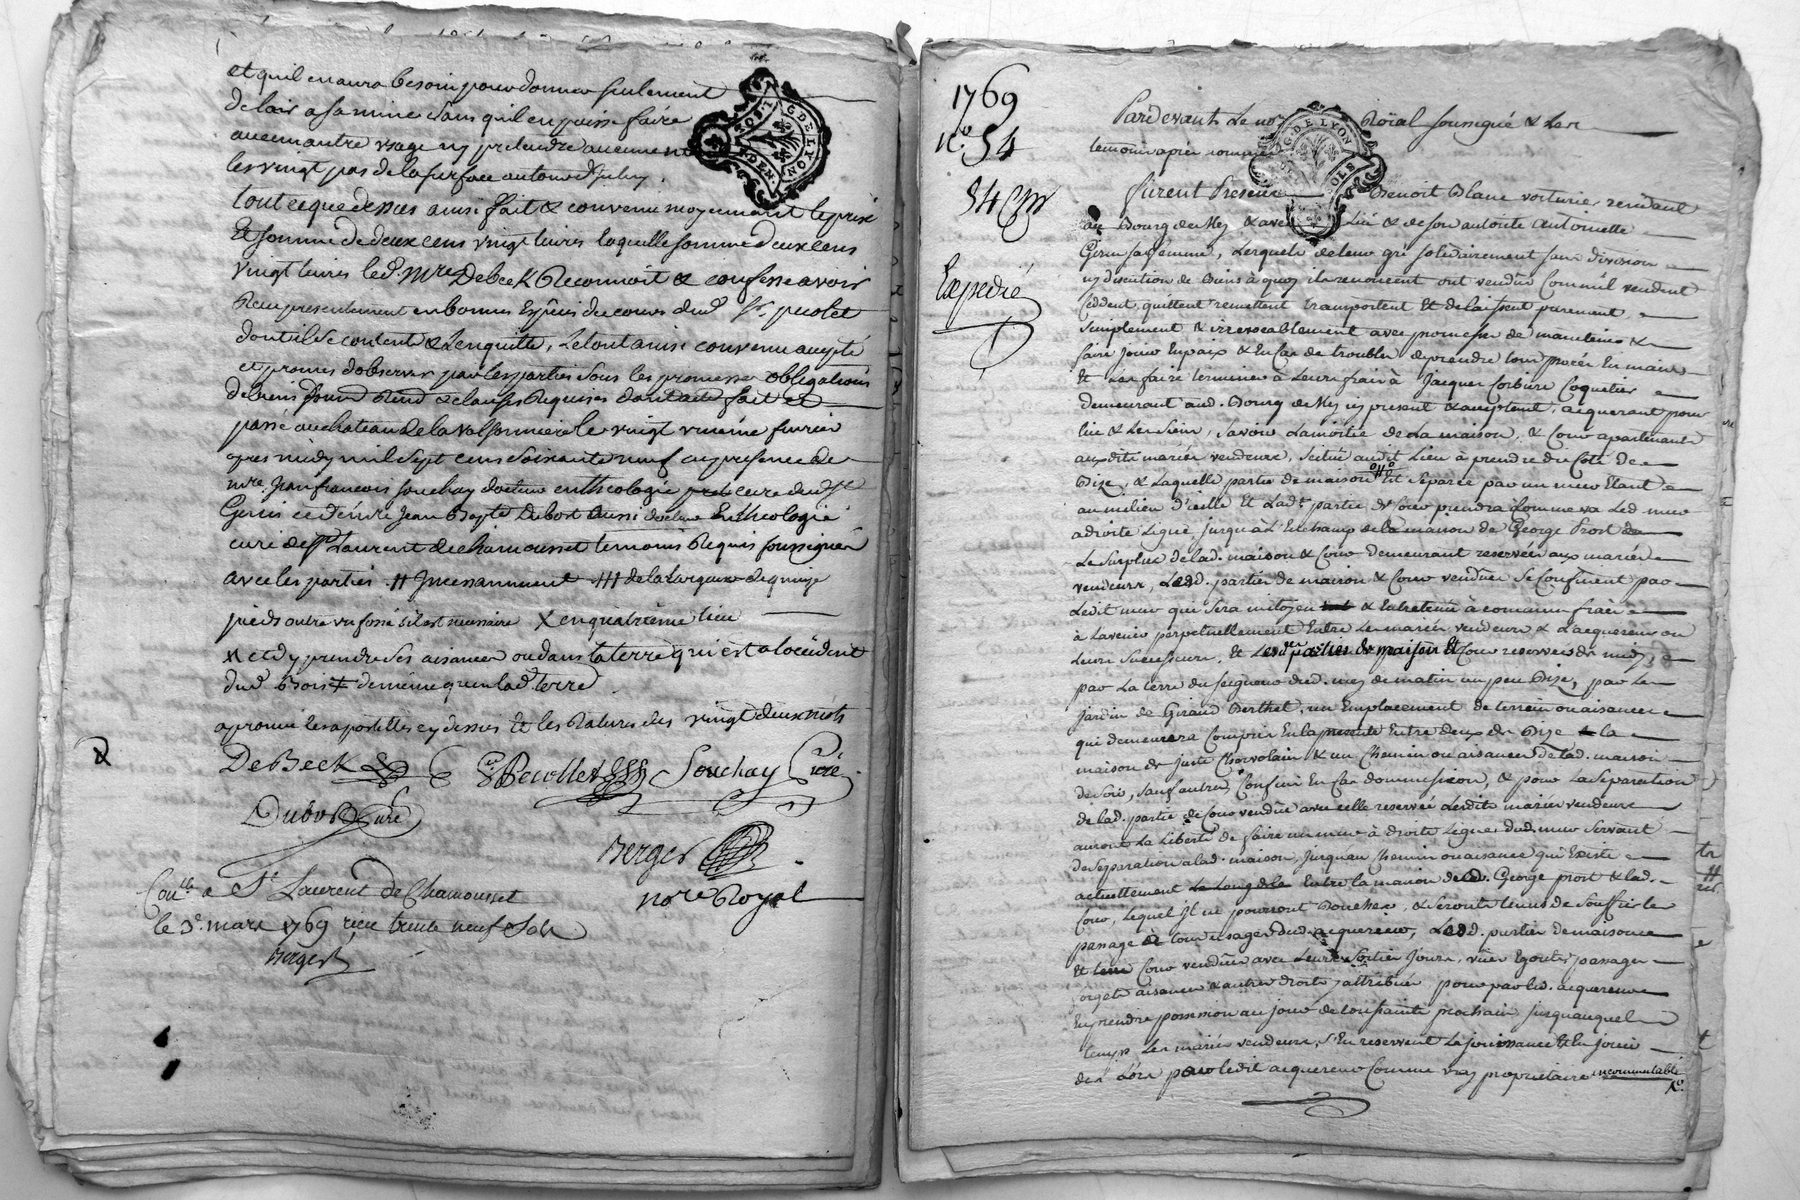 et qu'il en aura besoin pour donner seulement
de l'air a sa mine sans qu'il en puisse faire
aucun autre usage ny pretendre aucune
les vingt pas de la surface autour du puby.
tout ce que dessus ainsi fait & convenu moyennant le prix
Et somme de deux cens vingt livres laquelle somme deux cens
vingt livres led. Mre DeBeck Reconnoit & confesse avoir
Reçu presentement en bonnes Espèces du cours dud. Sr.
dont il se contente & l'en quitte, le tout ainsi convenu accepté
et promis d'observer par les parties sous les promesses obligations
de biens Rend & clauses Requises dont acte fait et
passé au chateau de la Valsonniere le vingt fevrier
apres midy mil sept cens soixante neuf en presence de
mre. Jean francois Souchay docteur en theologie curé de
Genis Jean Bapte Dubost aussi docteur En theologie
curé de St Laurent de chamousset temoins Requis soussignés
avec les parties. # Incessamment ### de la Largeur de quinze
pieds outre un fossé s'il est necessaire X en quatrieme lieu
et d'y prendre ses aisances ou dans la terre qui est a l'occident
dud Bois ‡ de meme qu'en lad terre
aprouvé les apostilles cy dessus Et les Ratures des vingt deux mots
DeBeck Pecollet Souchay Curé
Dubost Curé
Berger
nore Royal
Conllé a St Laurent de Chamousset
le 3e. mars 1769 reçu trente neuf Sols
Berger
1769
No. 54
54
Expedié
G. DE LYON
Pardevant Le nore Roïal soussigné & Les
temoins après nommés
furent Presens Benoit Blanc voiturier residant
au Bourg de & de son autorité Antoinette
sa femme, Lesquels de leur gré solidairement sans division
ny discution de Biens à quoy ils renoncent ont vendu Comm'il vendent
Cèdent, quittent remettent transportent Et delaissent purement
simplement & irrevocablement avec promesse de maintenir &
faire jouir En paix & En Cas de trouble, de prendre tous procès En main
Et Les faire terminer à Leurs frais à Jacques Corbiere Coquetier
demeurant aud. Bourg de icy present & acceptant, acquerant pour
lui & Les Siens, Savoir La moitié de La maison, & Cour apartenante
auxdits mariés vendeurs, scituée audit Lieu à prendre du Coté de
Bize, & Laquelle partie de maison est separée par un mur Etant
au milieu d'icelle Et Lade partie de Cour prendra Comme va Led mur
a droite Ligne, jusqu'à l'Enchamp de la maison de George Prost
Le surplus de lad. maison & Cour demeurant reservée aux mariés
vendeurs, Lesd. parties de maison & Cour vendues se Confinent par
Ledit mur qui sera mitoyen & Entretenu à comuns frais
à l'avenir perpetuellement Entre Les mariés vendeurs & L'acquereur ou
Leurs successeurs, & Lesd parties de maison & Cour reservées de midy
par La terre du seigneur dud. de matin un peu Bize, par Le
jardin de Giraud Berthet, un Emplacement de terrein ou aisances
qui demeurera Compris En la presente Entre deux de Bize la
maison de Juste Chorvolain & un Chemin ou aisances de lad. maison
de soir, sauf autres Confins En Cas d'ommission, & pour La Separation
de lad. partie de Cour vendue avec celle reservée Lesdits mariés vendeurs
auront La Liberté de faire un mur à droite Ligne dud. mur servant
de separation a lad. maison, jusqu'au Chemin ou aisance qui Existe
actuellement Entre la maison de d. George prost & lad.
Cour, Lequel Il ne pourront Boucher, & seront tenus de souffrir le
passage & tous usages dud. acquereur, Lesd. parties de maison
Et Cour vendues avec Leurs Sorties Jours, vues Egouts, passages
forgets aisances & autres droits y attribués, pour par led. acquereur
En prendre possession au jour de toussaints prochain jusqu'auquel
temps Les mariés vendeurs, s'En reservent La jouissance Et En jouir
des Lors par ledit acquereur Comme vray proprietaire incommutable